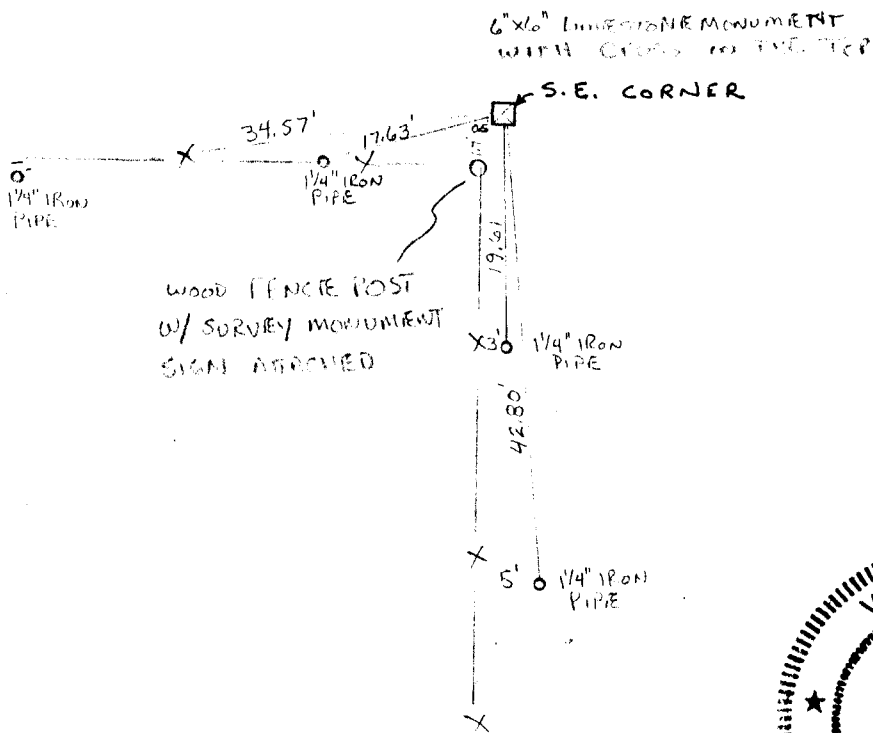 6"x6" LIMESTONE MONUMENT
WITH CROSS IN THE TOP
S.E. CORNER
34.57'
17.63'
1¼" IRON
PIPE
1¼" IRON
PIPE
19.61
WOOD FENCE POST
W/ SURVEY MONUMENT
SIGN ATTACHED
3'
1¼" IRON
PIPE
42.80'
5'
1¼" IRON
PIPE